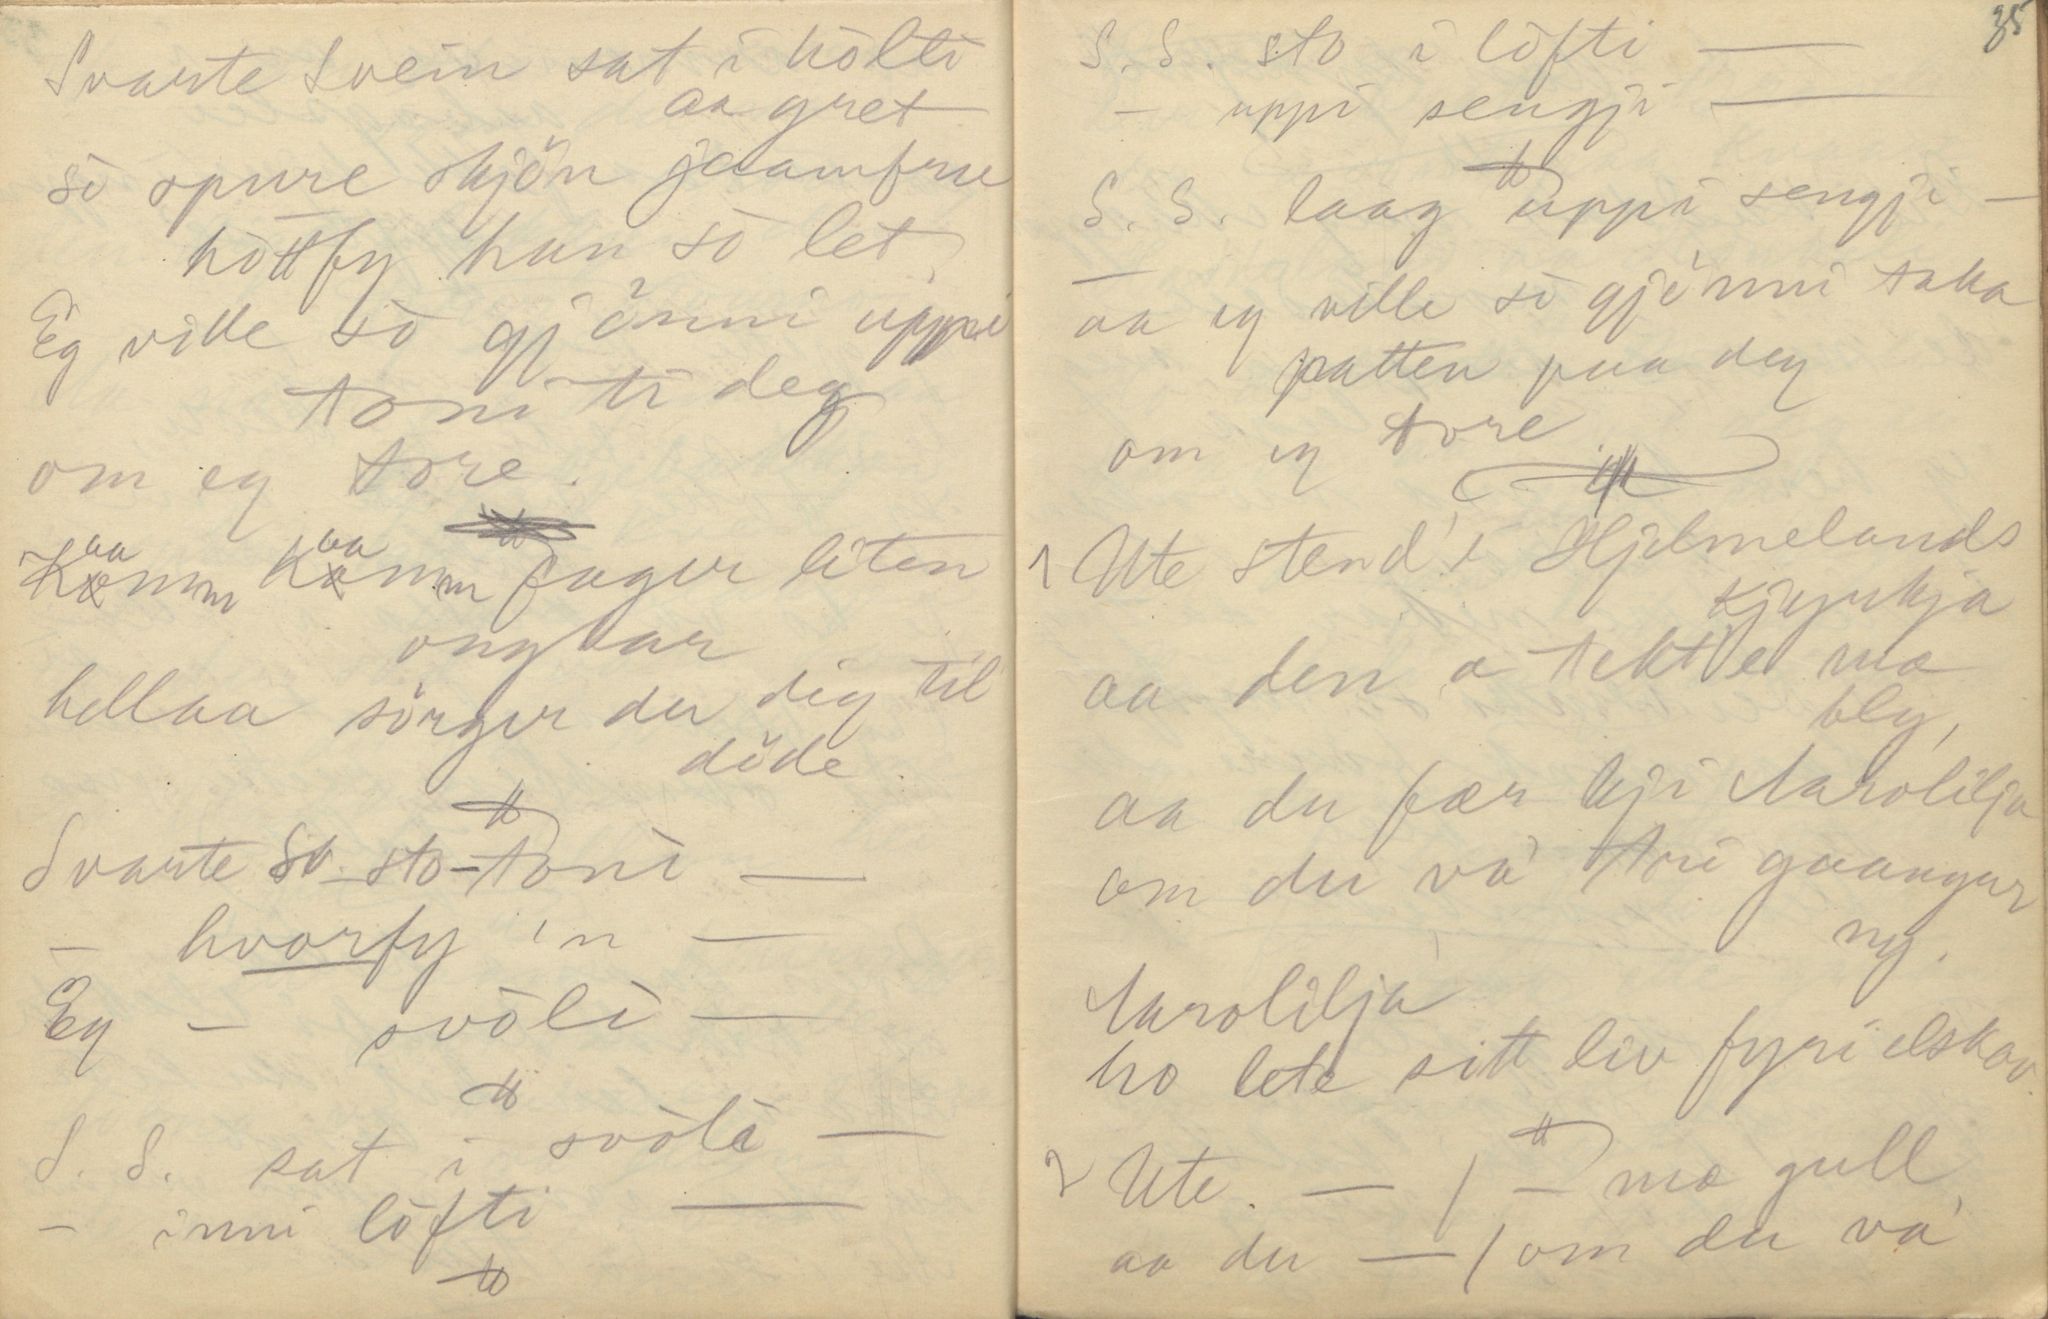 Svarte Svein sat i hölti
aa gret
so spure skjön jaamfrue
höttfy han so let.
Eg ville so gjönni uppi
toni ti deg
om eg tore.
Kaamm Kaamm fager liten
ongkar
hellaa sörger du dig til
döde.
Svarte Sv. sto - toni —
— hvorfy 'n —
Eg — svöli —
S. S. sat i svölè —
— inni löfti —
35
S. S. sto i löfti —
— uppi sengji —
S. S. laag uppi sengji —
—
aa eg ville so gjönni taka
patten paa deg
om eg tore.
1 Ute stend'e Hjelmelands
kjyrkja
aa den a tekt'e mæ
bly,
aa du fær kji Narolilja
om du va' tri gaangur
ny.
Narolilja
ho lete sitt liv fyri elskov.
2 Ute. — / — mæ gull,
aa du — / om du va'